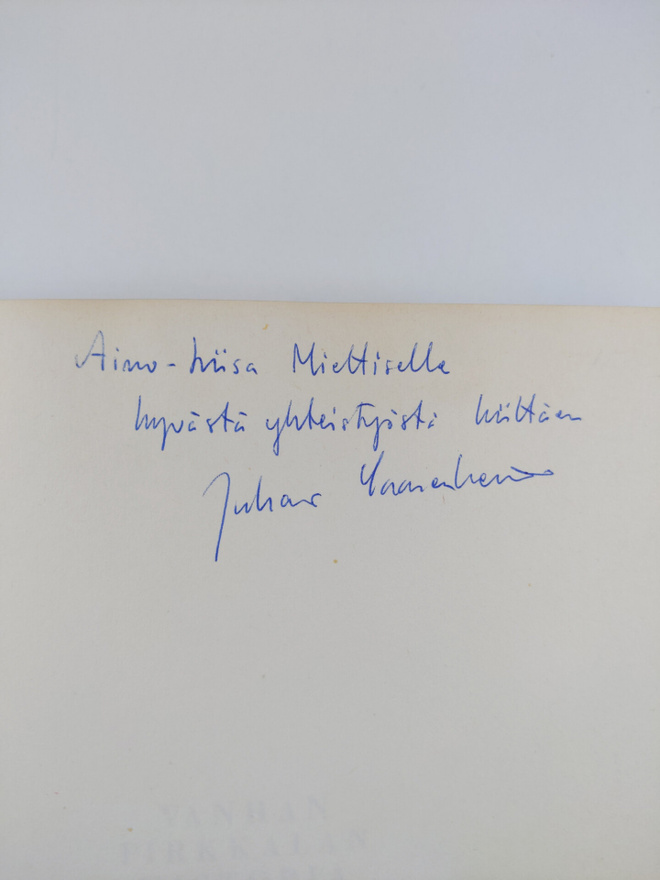 Aino-Liisa Miettiselle
hyvästä yhteistyöstä kiittäen
Juhani Saarenheimo
VANHAN
PIRKKALAN
HISTORIA